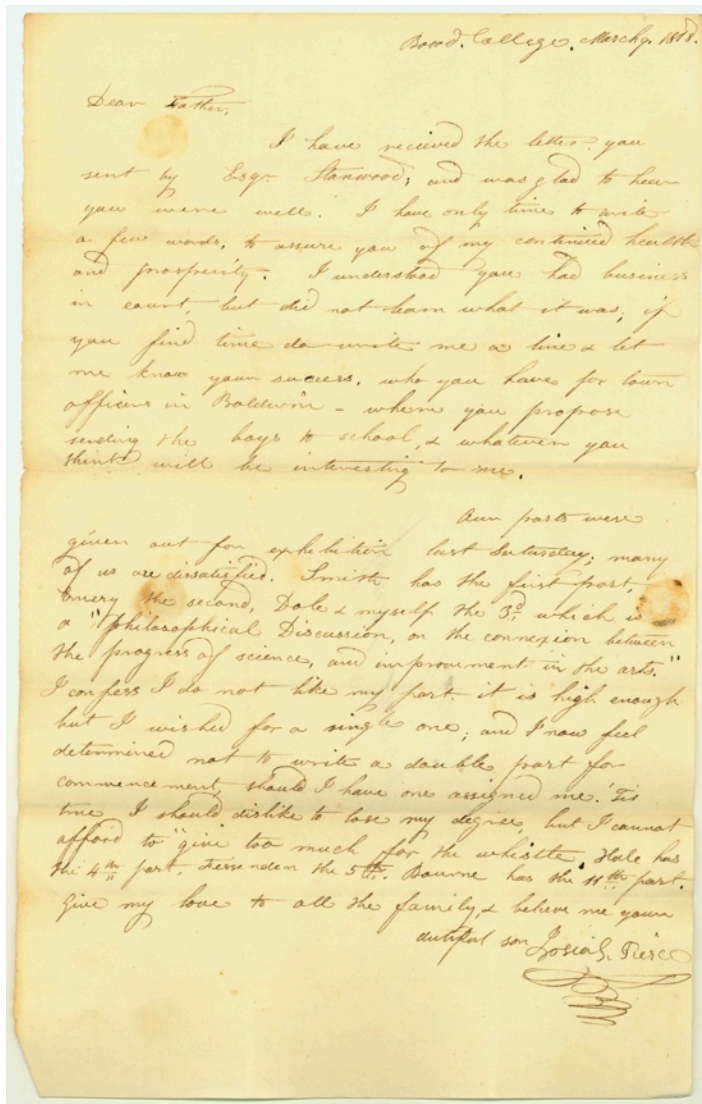 Bowd. College. March 9. 1818.
Dear Father,
I have recieved the letter you
sent by Esqr. Stanwood; and was glad to hear
you were well. I have only time to write
a few words, to assure you of my continued health
and prosperity. I understood you had business
in court, but did not learn what it was; if
you find time do write me a line & let
me know your success, who you have for town
officers in Baldwin – where you propose
sending the boys to school, & whatever you
think will be interesting to me.
Our parts were
given out for exhibition last Saturday; many
of us are dissatisfied. Smith has the first part,
Emery the second, Dole & myself the 3d. which is
a "Philosophical Discussion, on the connexion between
the progress of science, and improvement in the arts."
I confess I do not like my part. it is high enough
but I wished for a single one; and I now feel
determined not to write a double part for
commencement, should I have one assigned me. 'Tis
true I should dislike to lose my degree, but I cannot
afford to "give too much for the whistle. Hale has
the 4th part, Fessenden the 5th. Bourne has the 11th part.
Give my love to all the family, & believe me your
dutiful son Josiah Pierce